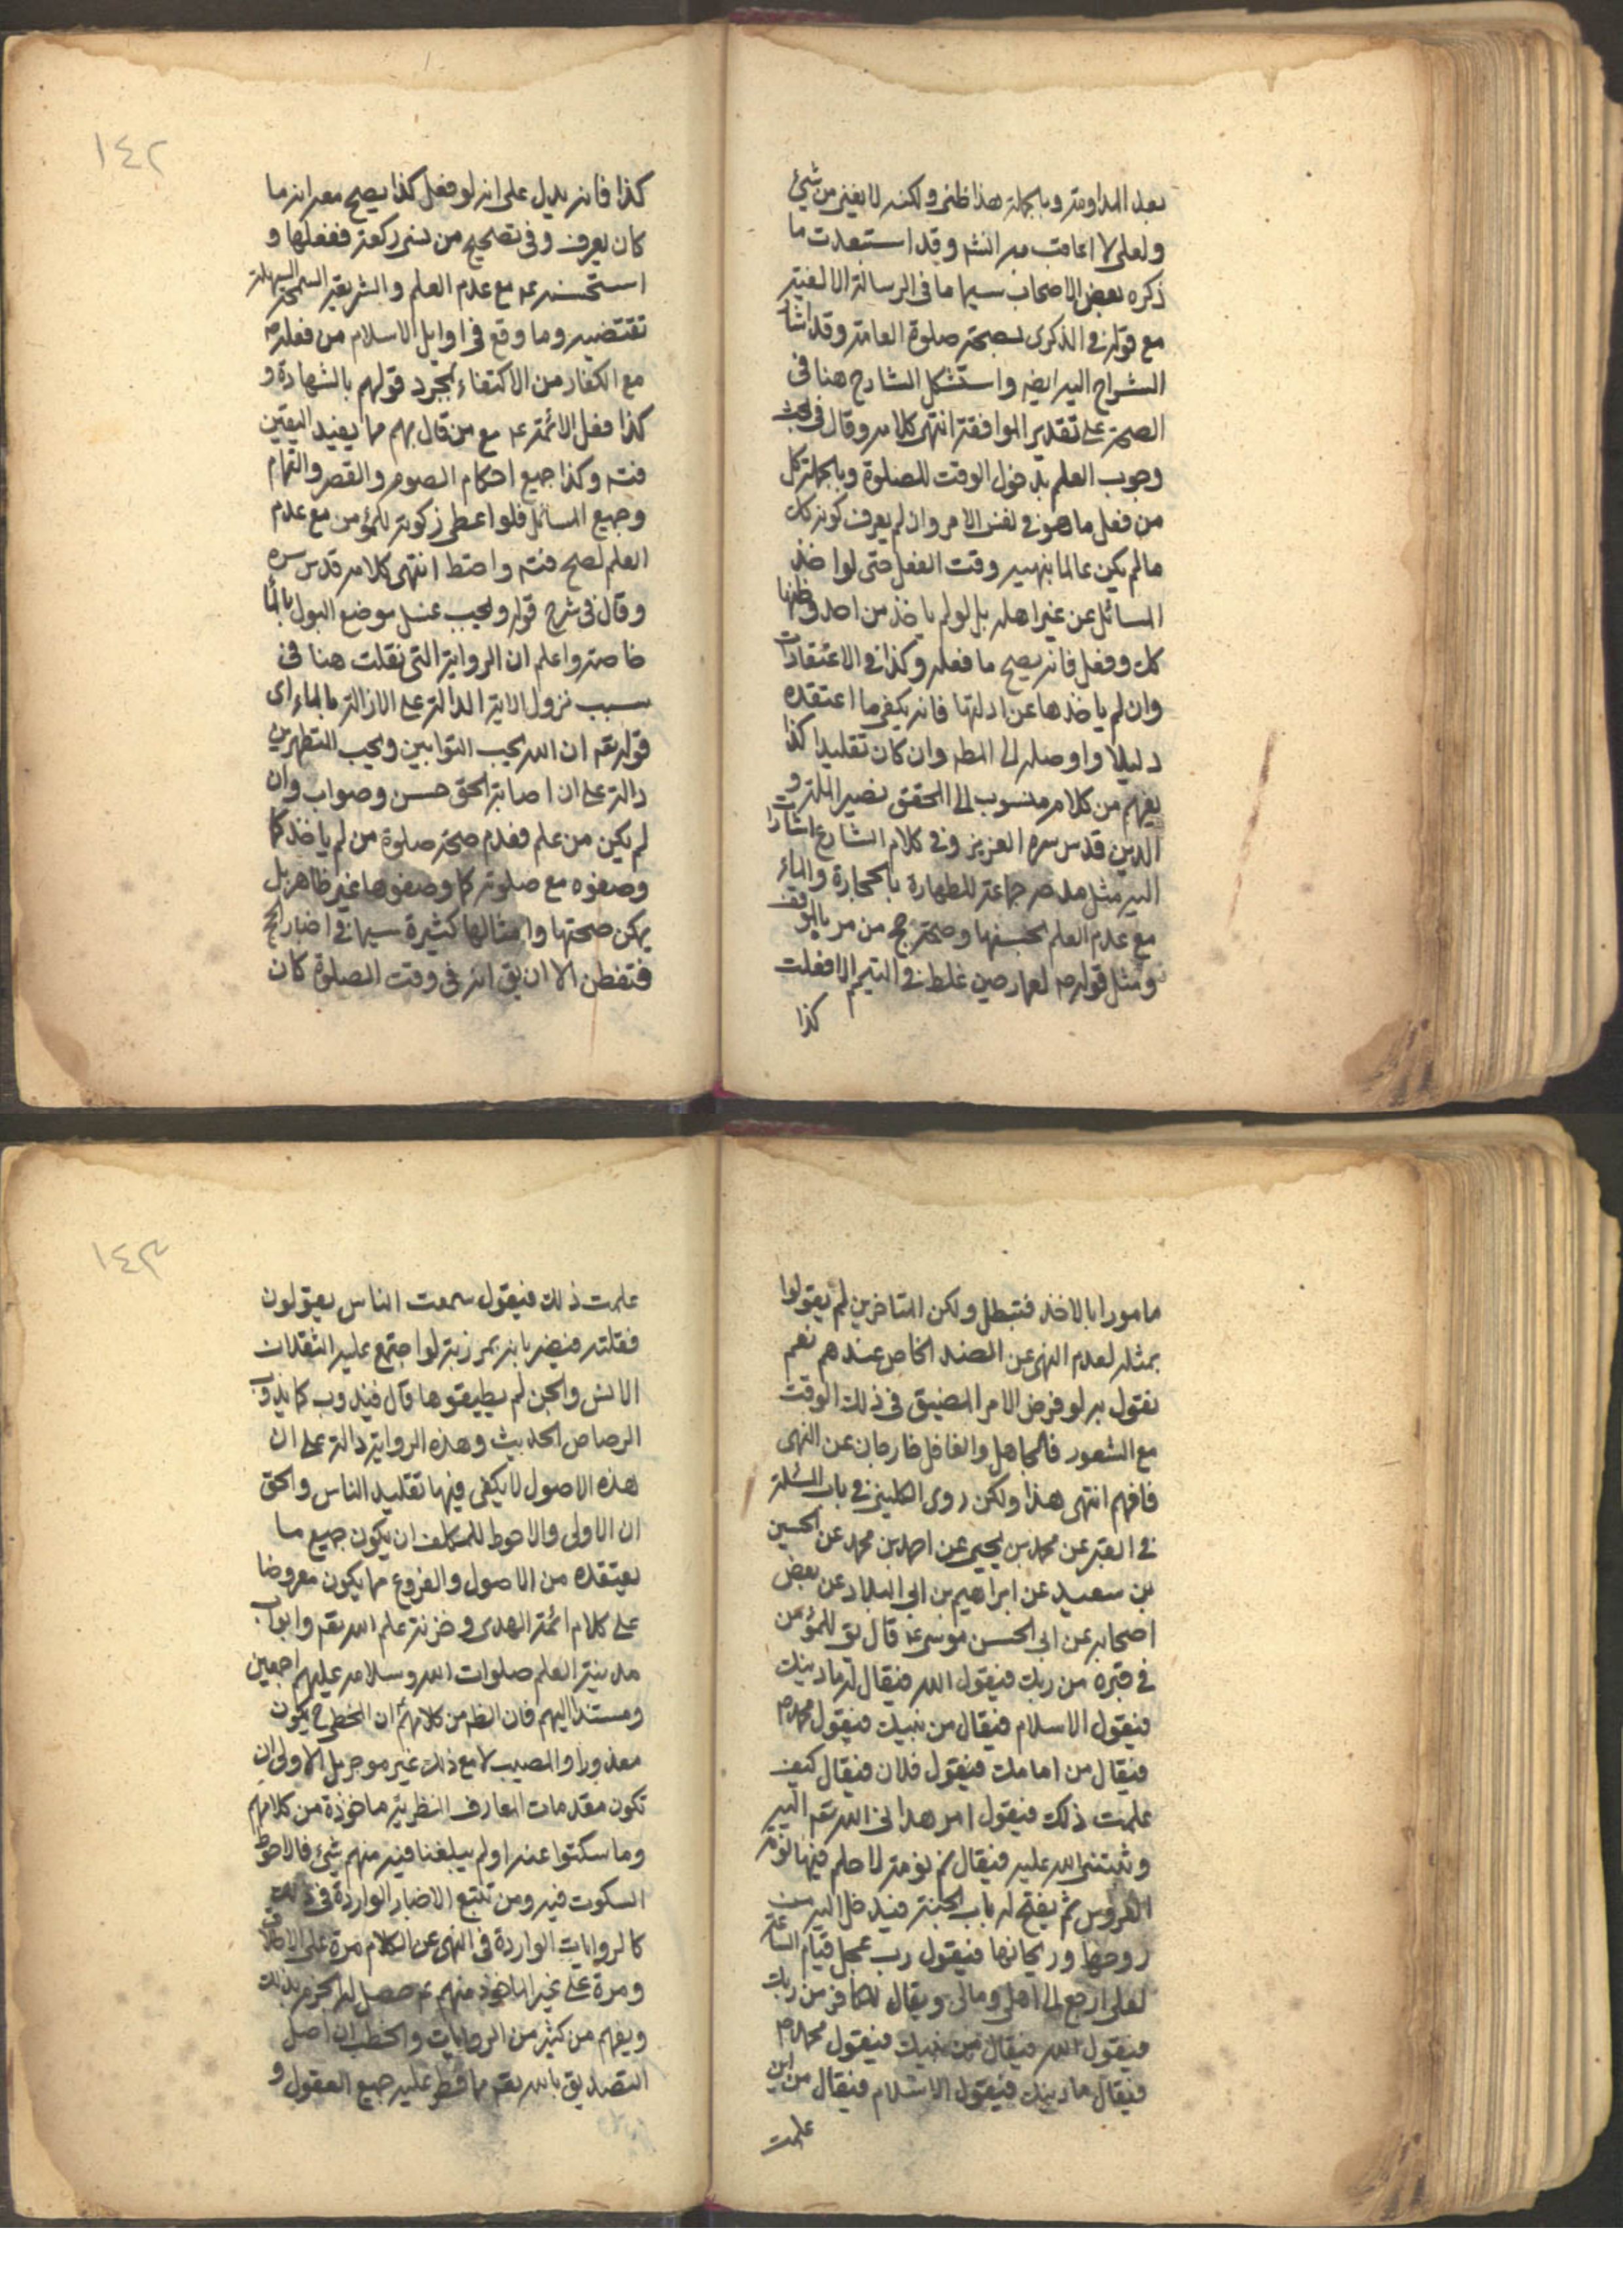 بعد المداومة وبالجملة هذا ظني ولكنه لا يغني من شيء
ولعلي لا اعاقب به انشه وقد استبعدت ما
ذكره بعض الاصحاب سيما ما في الرسالة الالفية
مع قوله في الذكرى بصحة صلوة العامة وقد اشار
الشراح اليه ايضه واستشكل الشارح هنا في
الصحة على تقدير الموافقة انتهى كلامه وقال في بحث
وجوب العلم بدخول الوقت للصلوة وبالجملة كل
من فعل ما هو في نفس الامر وان لم يعرف كونه كك
ما لم يكن عالما بنهيه وقت الفعل حتى لو اخذ
المسائل عن غير اهله بل لو لم ياخذ من احد وظنها
كك وفعل فانه يصح ما فعله وكذا في الاعتقادات
وان لم ياخذها عن ادلتها فانه يكفي ما اعتقده
دليلا واوصله الى المطه وان كان تقليدا كذا
يفهم من كلام منسوب الى المحقق نصير الملة و
الدين قدس سره العزيز وفي كلام الشارع اشارات
اليه مثل مدحه جماعة للطهارة بالحجارة والماء
مع عدم العلم بحسنها وصحة حج من مر بالموقف
ومثل قوله ص لعمار حين غلط في التيمم الا فعلت
كذا
١٤٢
كذا فانه يدل على انه لو فعل كذا يصح مع انه ما
كان يعرف وفي تصحيح من نسى ركعة ففعلها و
استحسنه ع مع عدم العلم والشريعة السمحة السهلة
تقتضيه وما وقع في اوايل الاسلام من فعله ص
مع الكفار من الاكتفاء بمجرد قولهم بالشهادة و
كذا فعل الائمة ع مع من قال بهم مما يفيد اليقين
فتم وكذا جميع احكام الصوم والقصر والتمام
وجميع المسائل فلو اعطى زكوته للمؤمن مع عدم
العلم لصح فتم واحتط انتهى كلامه قدس سره
وقال في شرح قوله ويجب غسل موضع البول بالماء
خاصة واعلم ان الرواية التي نقلت هنا في
سبب نزول الاية الدالة على الازالة بالماء اى
قوله تعه ان الله يحب التوابين ويحب المتطهرين
دالة على ان اصابة الحق حسن وصواب وان
لم يكن من علم فعدم صحة صلوة من لم ياخذ كما
وصفوه مع صلوته كما وصفوها غير ظاهر بل
يمكن صحتها وامثالها كثيرة سيما في اخبار الحج
فتفطن الا ان يق انه في وقت الصلوة كان
مامورا بالاخذ فتبطل ولكن المتاخرين لم يقولوا
بمثله لعدم النهى عن الضد الخاص عندهم نعم
نقول به لو فرض الامر المضيق في ذلك الوقت
مع الشعور فالجاهل والغافل خارجان عن النهى
فافهم انتهى هذا ولكن روى الكليني في باب المسئلة
في القبر عن محمد بن يحيى عن احمد بن محمد عن الحسين
بن سعيد عن ابراهيم بن ابي البلاد عن بعض
اصحابه عن ابي الحسن موسى ع قال يق للمؤمن
في قبره من ربك فيقول الله فيقال له ما دينك
فيقول الاسلام فيقال من نبيك فيقول محمد ص
فيقال من امامك فيقول فلان فيقال كيف
علمت ذلك فيقول امر هداني الله تعه اليه
وثبتني الله عليه فيقال نم نومة لا حلم فيها نومة
العروس ثم يفتح له باب الجنة فيدخل اليه من
روحها وريحانها فيقول رب عجل قيام الساعة
لعلى ارجع الى اهلي ومالى ويقال للكافر من ربك
فيقول الله فيقال من نبيك فيقول محمد ص
فيقال ما دينك فيقول الاسلام فيقال من اين
علمت
١٤٣
علمت ذلك فيقول سمعت الناس يقولون
فقلته فيضربانه بمرزبة لو اجتمع عليه الثقلان
الانس والجن لم يطيقوها قال فيذوب كما يذوب
الرصاص الحديث وهذه الرواية دالة على ان
هذه الاصول لا يكفي فيها تقليد الناس والحق
ان الاولى والاحوط للمكلف ان يكون جميع ما
يعتقده من الاصول والفروع مما يكون معروضا
على كلام ائمة الهدى وخزنة علم الله تعه وابواب
مدينة العلم صلوات الله وسلامه عليهم اجمعين
ومستندا اليهم فان الظ من كلامهم ان المخطى ح يكون
معذورا والمصيب لا مع ذلك غير موجر بل الاولى ان
تكون مقدمات المعارف النظرية ماخوذة من كلامهم
وما سكتوا عنه او لم يبلغنا فيه منهم شيء فالاحوط
السكوت فيه ومن تتبع الاخبار الواردة في ذلك
كالروايات الواردة في النهى عن الكلام مرة على الاطلاق
ومرة على غير الماخوذ منهم ع حصل له الجزم بذلك
ويفهم من كثير من الروايات والخطب ان اصل
التصديق بالله تعه مما فطر عليه جميع العقول و